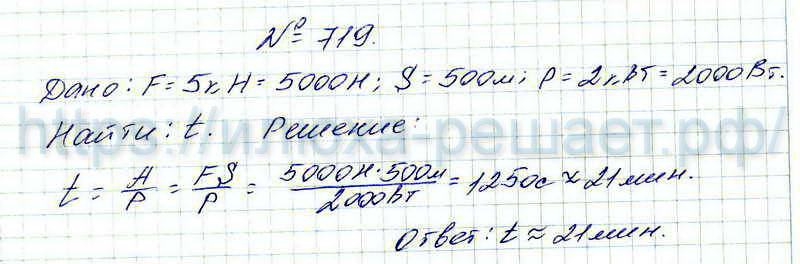 № 719.
Дано: F = 5кН = 5000Н; S = 500м; P = 2кВт = 2000Вт.
Найти: t. Решение:
https://илюха-решает.рф/
t = A/P = FS/P = 5000Н·500м/2000Вт = 1250с ≈ 21мин.
Ответ: t ≈ 21мин.